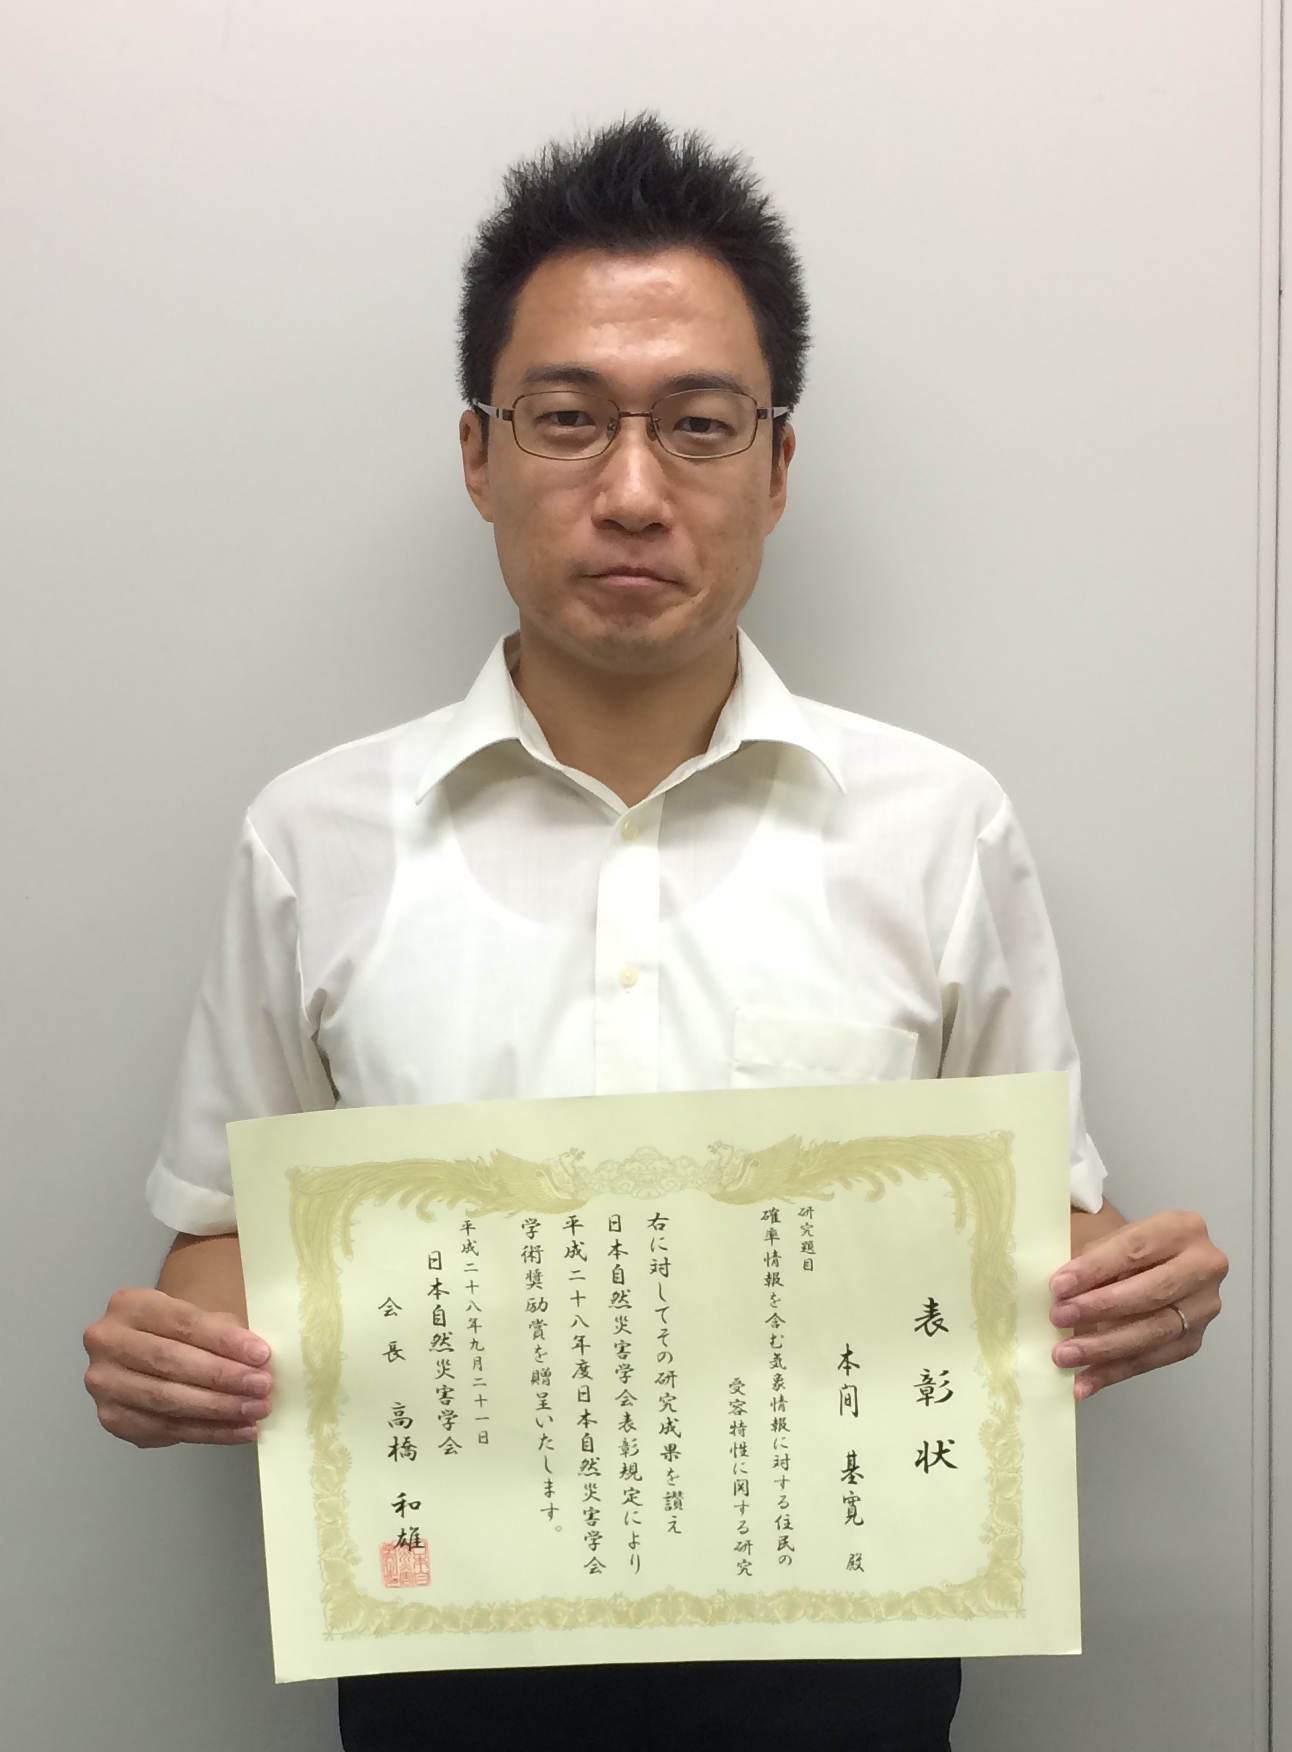 表彰状
本間 基寛 殿
研究題目
確率情報を含む気象情報に対する住民の
受容特性に関する研究
右に対してその研究成果を讃え
日本自然災害学会表彰規定により
平成二十八年度日本自然災害学会
学術奨励賞を贈呈いたします。
平成二十八年九月二十一日
日本自然災害学会
会長 高橋 和雄